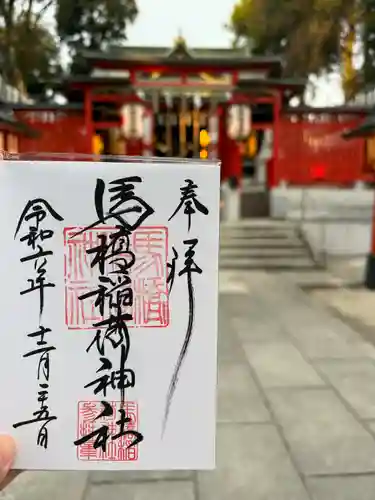 奉拝
馬橋稲荷神社
令和六年十二月二十五日